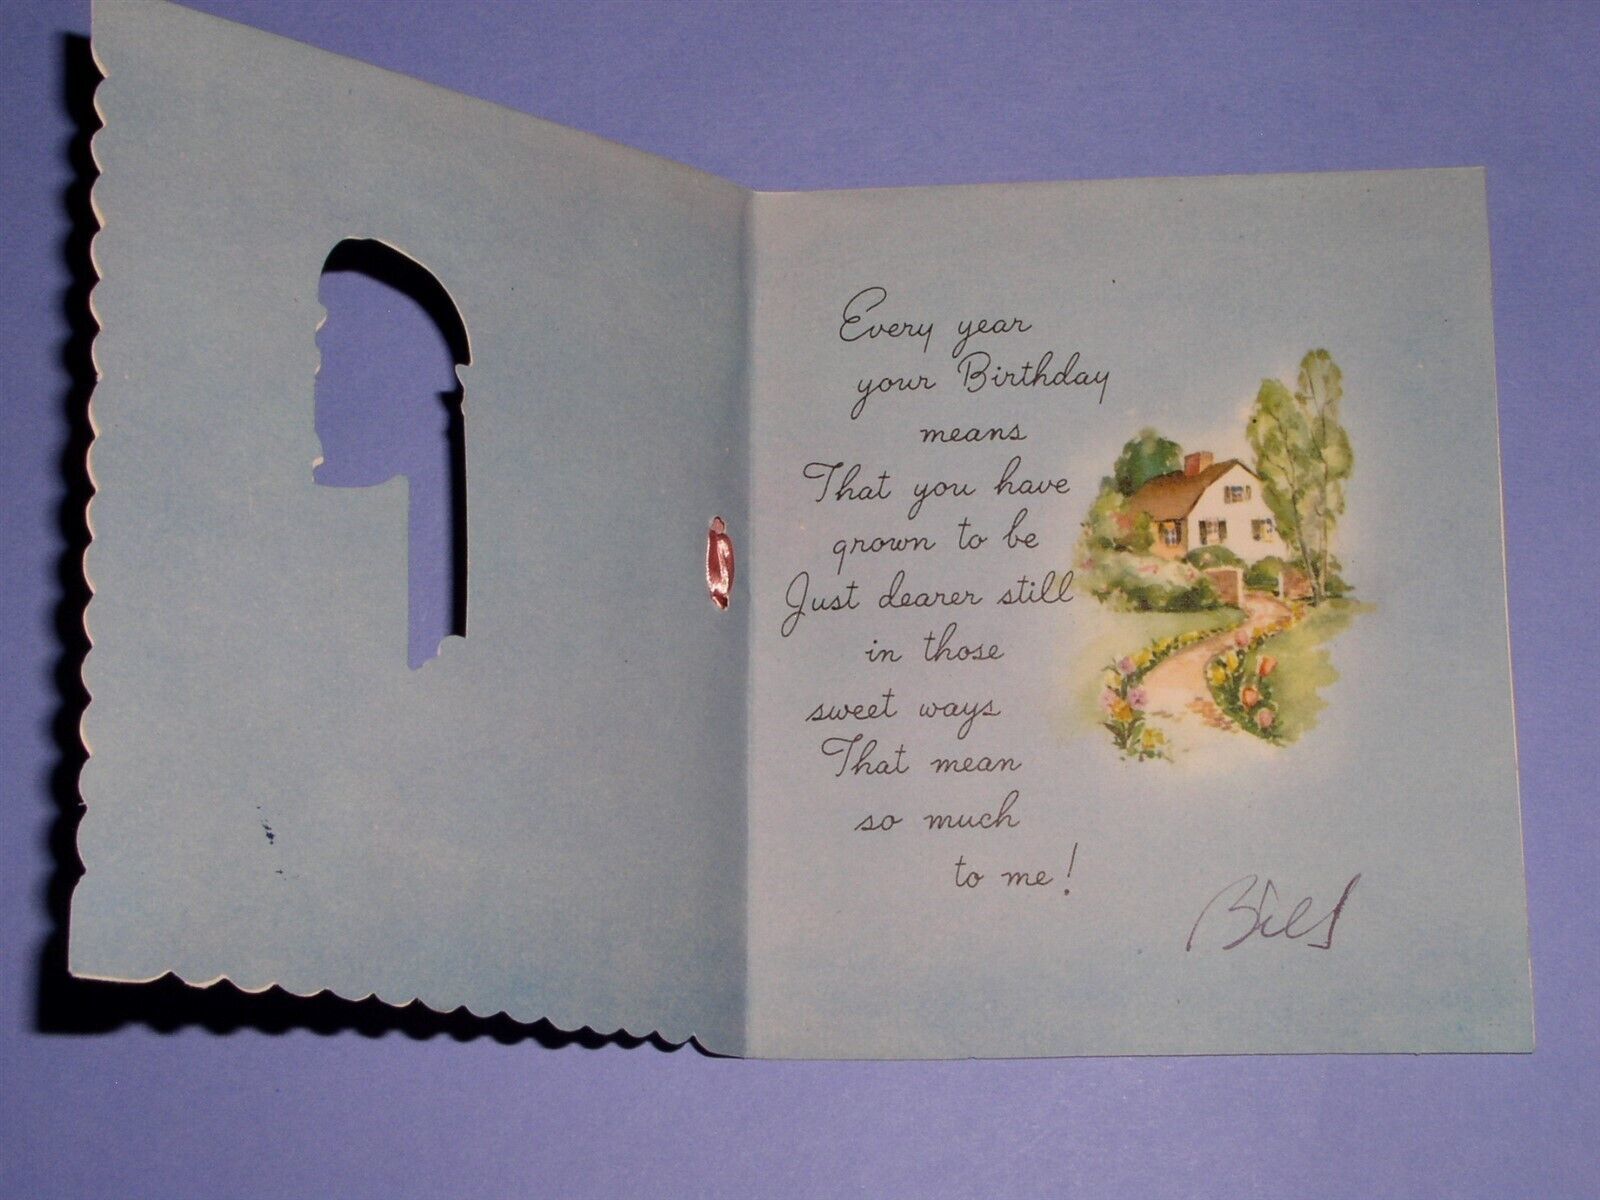 Every year
your Birthday
means
That you have
grown to be
Just dearer still
in those
sweet ways
That mean
so much
to me!
Bill